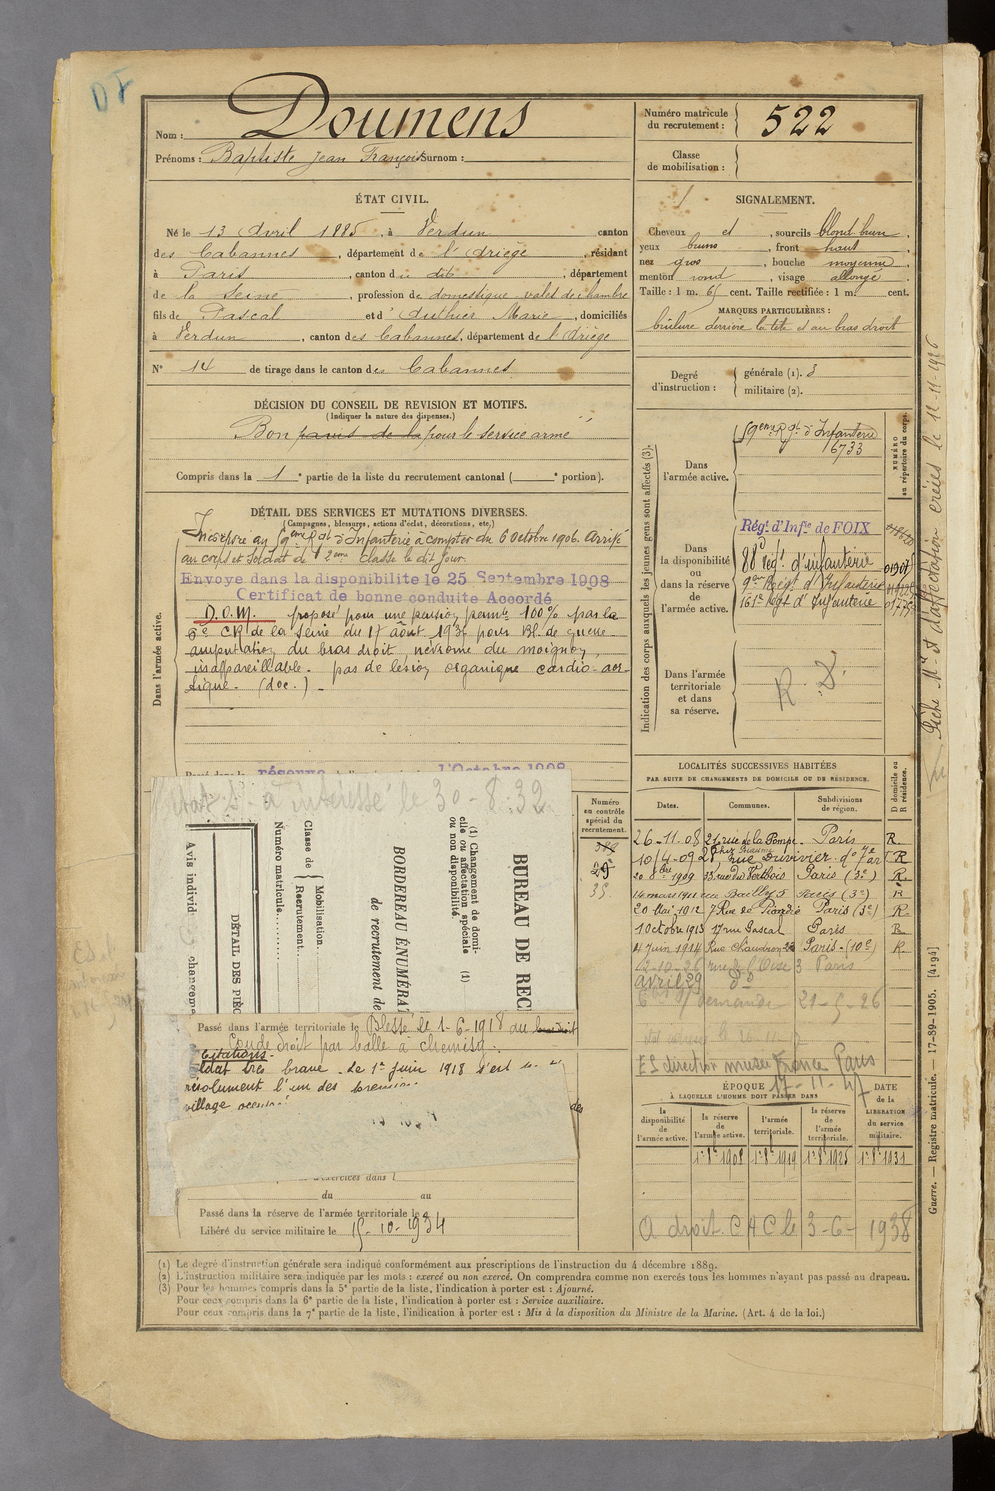 DF
Nom : Doumens
Prénoms : Baptiste Jean François Surnom :
Numéro matricule du recrutement : 522
Classe de mobilisation :
ÉTAT CIVIL.
Né le 13 Avril 1885, à Verdun canton
des Cabannes, département de l'Ariège, résidant
à Paris, canton du dit, département
de la Seine, profession de domestique valet de chambre
fils de Pascal et d' Authier Marie, domiciliés
à Verdun, canton des Cabannes, département de l'Ariège
N° 14 de tirage dans le canton des Cabannes
SIGNALEMENT.
Cheveux et, sourcils blond brun.
yeux bruns, front haut
nez gros, bouche moyenne
menton rond, visage allongé
Taille : 1 m. 65 cent. Taille rectifiée : 1 m. cent.
MARQUES PARTICULIÈRES :
brûlure derrière la tête et au bras droit
Degré d'instruction : générale (1). 3
militaire (2).
DÉCISION DU CONSEIL DE REVISION ET MOTIFS.
(Indiquer la nature des dispenses.)
Bon pour le service armé
Compris dans la 1e partie de la liste du recrutement cantonal ( e portion).
DÉTAIL DES SERVICES ET MUTATIONS DIVERSES.
(Campagnes, blessures, actions d'éclat, décorations, etc.)
Dans l'armée active.
Incorporé au 59ème Rgt d'Infanterie à compter du 6 Octobre 1906. Arrivé
au corps et soldat de 2ème classe le dit jour.
Envoyé dans la disponibilité le 25 Septembre 1908
Certificat de bonne conduite Accordé
D.O.M. proposé pour une pension permte 100% par la
6e CR de la Seine du 17 août 193 pour Bl. de guerre
amputation du bras droit, névrome du moignon,
inappareillable. pas de lésion organique cardio-aor-
tique. (doc.) -
réserve l'Octobre 1908
à intéressé le 30-8-32
Avis individ changeme
DÉTAIL DES PIÈC
Numéro matricule
Classe de Mobilisation.
Recrutement.
BORDEREAU ÉNUMÉRAT
de recrutement de
(1) Changement de domi-
cile ou affectation spéciale (1)
ou non disponibilité.
BUREAU DE REC
Passé dans l'armée territoriale le
Blessé le 1-6-1918 au
Coude droit par balle à Chemisy.
Citations.
ldat très brave. Le 1er juin 1918 s'est
résolument l'un des
village
du au
Passé dans la réserve de l'armée territoriale le
Libéré du service militaire le 15-10-1934
Indication des corps auxquels les jeunes gens sont affectés (3).
NUMÉRO au répertoire du corps.
Dans l'armée active.
59ème Rgt d'Infanterie
16733
Dans la disponibilité ou dans la réserve de l'armée active.
Régt d'Infie de FOIX
88e régt d'infanterie
9ème Régt d'Infanterie
161e Régt d'Infanterie
Dans l'armée territoriale et dans sa réserve.
R. D.
Fiche Mle et d'affectation créées le 12-11-1926
Numéro au contrôle spécial du recrutement.
29
35
LOCALITÉS SUCCESSIVES HABITÉES
PAR SUITE DE CHANGEMENTS DE DOMICILE OU DE RÉSIDENCE.
D domicile ou R résidence.
Dates. Communes. Subdivisions de région.
26-11-08 21, rue de la Pompe Paris R.
10/4-09 28, rue Duvivier do 7e arrt R
20 8bre 1909 33, rue du Vertbois Paris (3e) R.
14 mars 1911 rue Bailly 5 Paris (3e) R
20 Mai 1912 7 Rue de Picardie Paris (3e) R.
1 Octobre 1913 17 rue Pascal Paris R
4 Juin 1914 Rue Chaudron 26 Paris (10e) R
12-10-26 rue de l'Oise 3 Paris
avril 29 do
demande 21-5-26
direction France Paris
17-11-47
ÉPOQUE
À LAQUELLE L'HOMME DOIT PASSER DANS
DATE de la LIBÉRATION du service militaire.
la disponibilité de l'armée active.
la réserve de l'armée active.
l'armée territoriale.
la réserve de l'armée territoriale.
1er 8e 1908 1er 8e 1919 1er 8e 1925 1er 8e 1931
A droit C A C le 3-6-1938
Guerre. — Registre matricule. — 17-89-1905. [4194]
(1) Le degré d'instruction générale sera indiqué conformément aux prescriptions de l'instruction du 4 décembre 1889.
(2) L'instruction militaire sera indiquée par les mots : exercé ou non exercé. On comprendra comme non exercés tous les hommes n'ayant pas passé au drapeau.
(3) Pour les hommes compris dans la 5e partie de la liste, l'indication à porter est : Ajourné.
Pour ceux compris dans la 6e partie de la liste, l'indication à porter est : Service auxiliaire.
Pour ceux compris dans la 7e partie de la liste, l'indication à porter est : Mis à la disposition du Ministre de la Marine. (Art. 4 de la loi.)